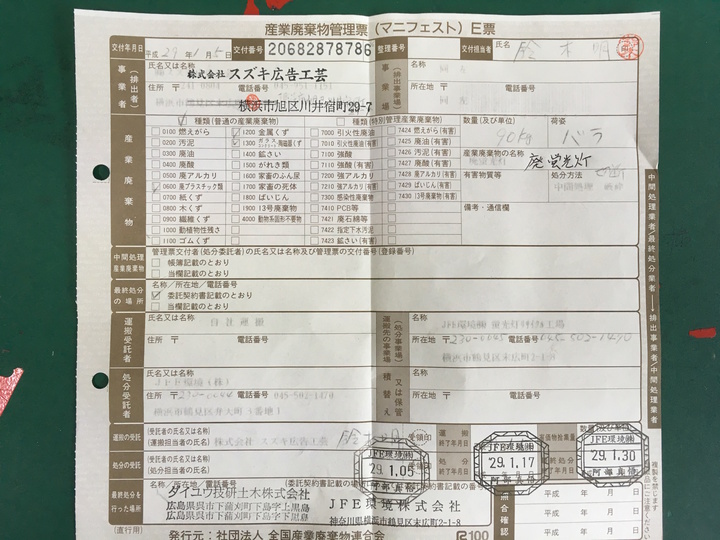 産業廃棄物管理票(マニフェスト)E票
交付年月日 平成 29年 1月 5日 交付番号 20682878786 整理番号 交付担当者 氏名 鈴木明
事業者 (排出者) 氏名又は名称
株式会社 スズキ広告工芸
住所 〒 電話番号
横浜市旭区川井宿町29-7
事業場 (排出事業場) 名称
所在地 〒 電話番号
産業廃棄物
種類(普通の産業廃棄物) 種類(特別管理産業廃棄物) 数量(及び単位) 荷姿
0100 燃えがら 1200 金属くず 7000 引火性廃油 7424 燃えがら(有害) 90kg バラ
0200 汚泥 1300 ガラス・陶磁器くず 7010 引火性廃油(有害) 7425 廃油(有害)
0300 廃油 1400 鉱さい 7100 強酸 7426 汚泥(有害) 産業廃棄物の名称
0400 廃酸 1500 がれき類 7110 強酸(有害) 7427 廃酸(有害) 廃蛍光灯
0500 廃アルカリ 1600 家畜のふん尿 7200 強アルカリ 7428 廃アルカリ(有害) 有害物質等 処分方法
0600 廃プラスチック類 1700 家畜の死体 7210 強アルカリ(有害) 7429 ばいじん(有害) 中間処理
0700 紙くず 1800 ばいじん 7300 感染性廃棄物 7430 13号廃棄物(有害)
0800 木くず 1900 13号廃棄物 7410 PCB等 備考・通信欄
0900 繊維くず 4000 動物系固形不要物 7421 廃石綿等
1000 動植物性残さ 7422 指定下水汚泥
1100 ゴムくず 7423 鉱さい(有害)
中間処理産業廃棄物 管理票交付者(処分委託者)の氏名又は名称及び管理票の交付番号(登録番号)
帳簿記載のとおり
当欄記載のとおり
最終処分の場所 名称/所在地/電話番号
委託契約書記載のとおり
当欄記載のとおり
運搬受託者 氏名又は名称
自社運搬
住所 〒 電話番号
運搬先の事業場 (処分事業場) 名称
所在地 〒 230-0045 電話番号 045-502-1490
横浜市鶴見区末広町2-1-8
処分受託者 氏名又は名称
JFE環境(株)
住所 〒 電話番号
横浜市鶴見区弁天町(番地)
積替え又は保管 名称
所在地 〒 電話番号
運搬の受託 (受託者の氏名又は名称)
(運搬担当者の氏名) 株式会社 スズキ広告工芸 鈴木明 受領印 運搬終了年月日 有価物拾集量 数量(及び単位)
処分の受託 (受託者の氏名又は名称)
(処分担当者の氏名) 処分終了年月日
JFE環境㈱ 29.1.05 阿部真悟
JFE環境㈱ 29.1.17 阿部真悟
JFE環境㈱ 29.1.30 阿部真悟
最終処分を行った場所 名称/所在地/電話番号
ダイユウ技研土木株式会社
広島県呉市下蒲刈町下島字上黒島
広島県呉市下蒲刈町下島字下黒島
JFE環境株式会社
神奈川県横浜市鶴見区末広町2-1-8
照合確認 平成 年 月 日
平成 年 月 日
平成 年 月 日
中間処理業者/最終処分業者→排出事業者/中間処理業者
複製を禁じます
(直行用) 発行元:社団法人 全国産業廃棄物連合会 R100